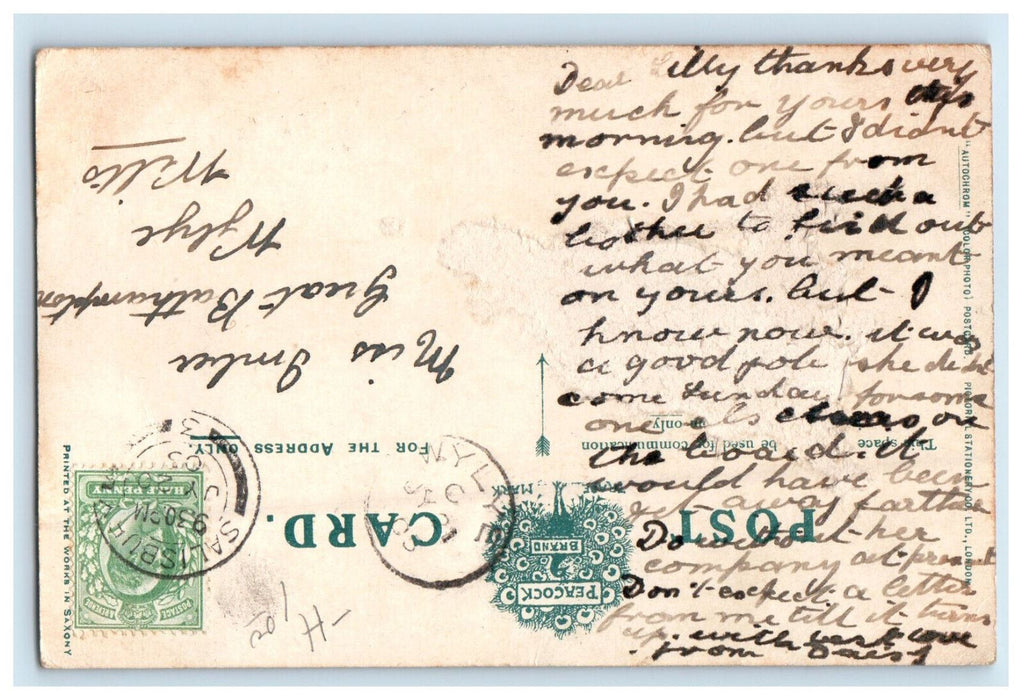 Dear Lilly thanks very
much for yours this
morning. but I didnt
expect one from
you. I had such a
bother to find out
what you meant
on yours. but I
know now. it was
a good job she didnt
come Sunday. for some
one els was on
the board. it
would have been
farther
Do without her
company at present
Don't expect a letter
from me till it turns
up. with best love
from Daisy
POST CARD.
PEACOCK
BRAND
MARK
This space
be used for communication
only.
FOR THE ADDRESS ONLY.
Miss Imber
Great Bathampton
Wylye
Wilts
SALISBURY
9.30PM
JY 20
03
3
WYLYE
JY 21
03
POSTAGE
& REVENUE
HALF PENNY
PRINTED AT THE WORKS IN SAXONY
"AUTOCHROM" (COLOR PHOTO) POSTCARD
PICTORIAL STATIONERY CO. LTD., LONDON